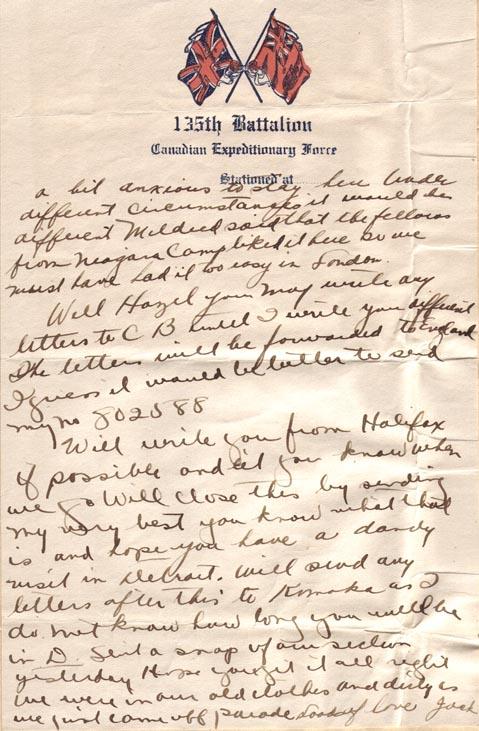 135th Battalion
Canadian Expeditionary Force
Stationed at
a bit anxious to stay here Under
different circumstances it would be
different Mildred said that the fellows
from Niagara Camp liked it here so we
must have had it too easy in London.
Well Hazel you may write any
letters to C B until I write you different
The letters will be forwarded to England
I guess it would be better to send
my no 802588
Will write you from Halifax
if possible and let you know when
we go Will close this by sending
my very best you know what that
is and hope you have a dandy
visit in Detroit. Will send any
letters after this to Komoka as I
do not know how long you will be
in D Sent a snap of our section
yesterday Hope you get it all right
We were in our old clothes and dirty as
we just came off parade Loads of love Jack